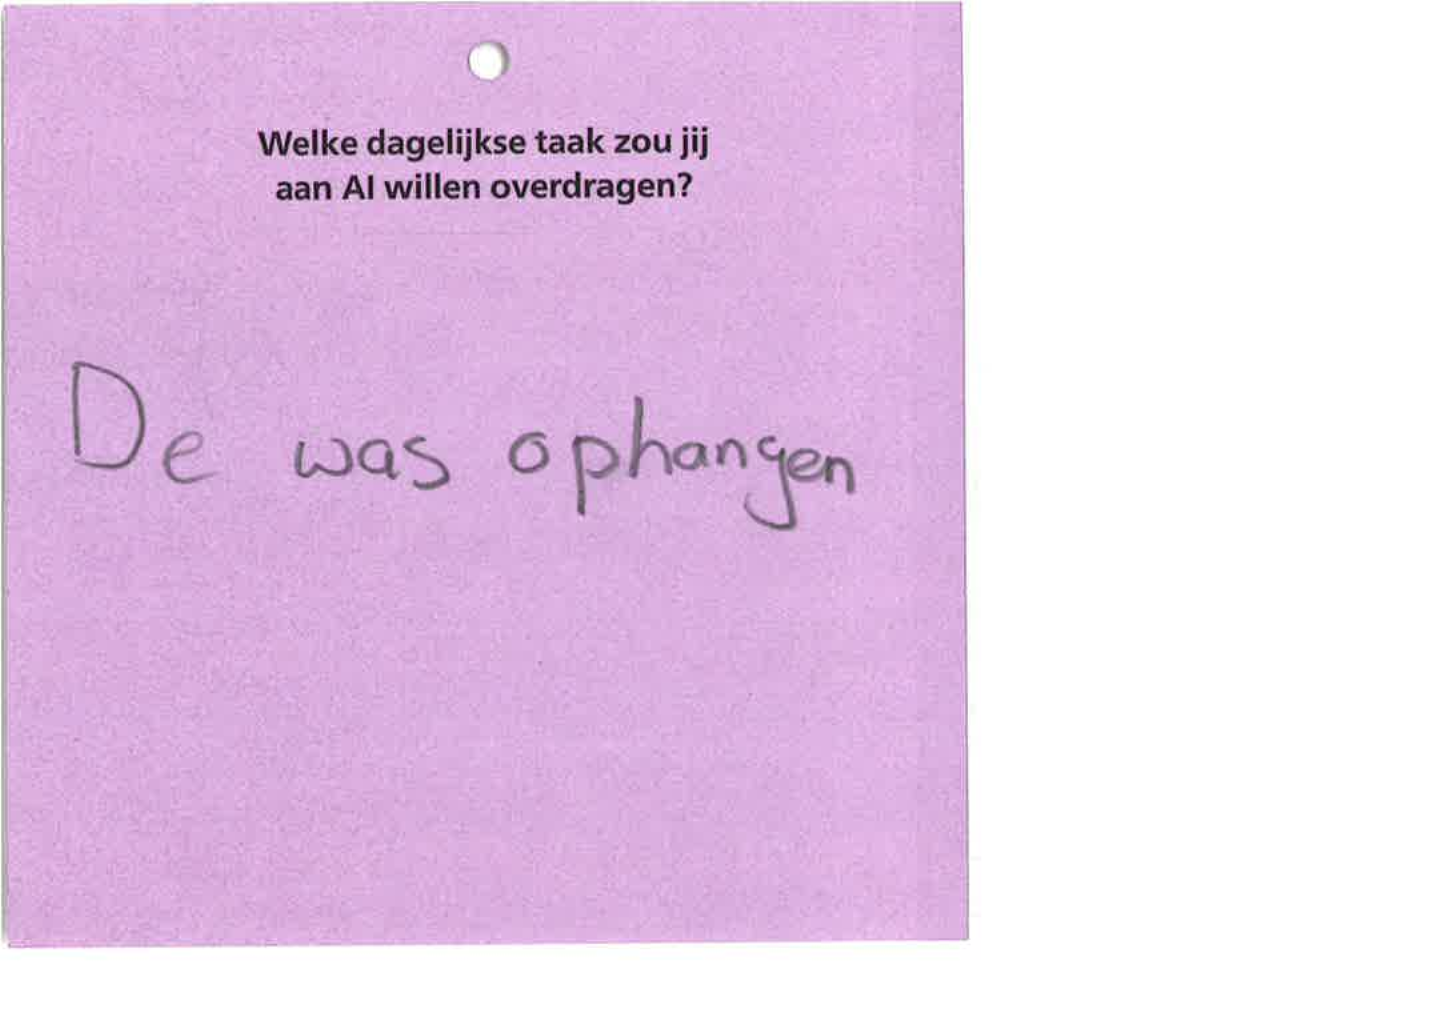 Welke dagelijkse taak zou jij
aan AI willen overdragen?
De was ophangen